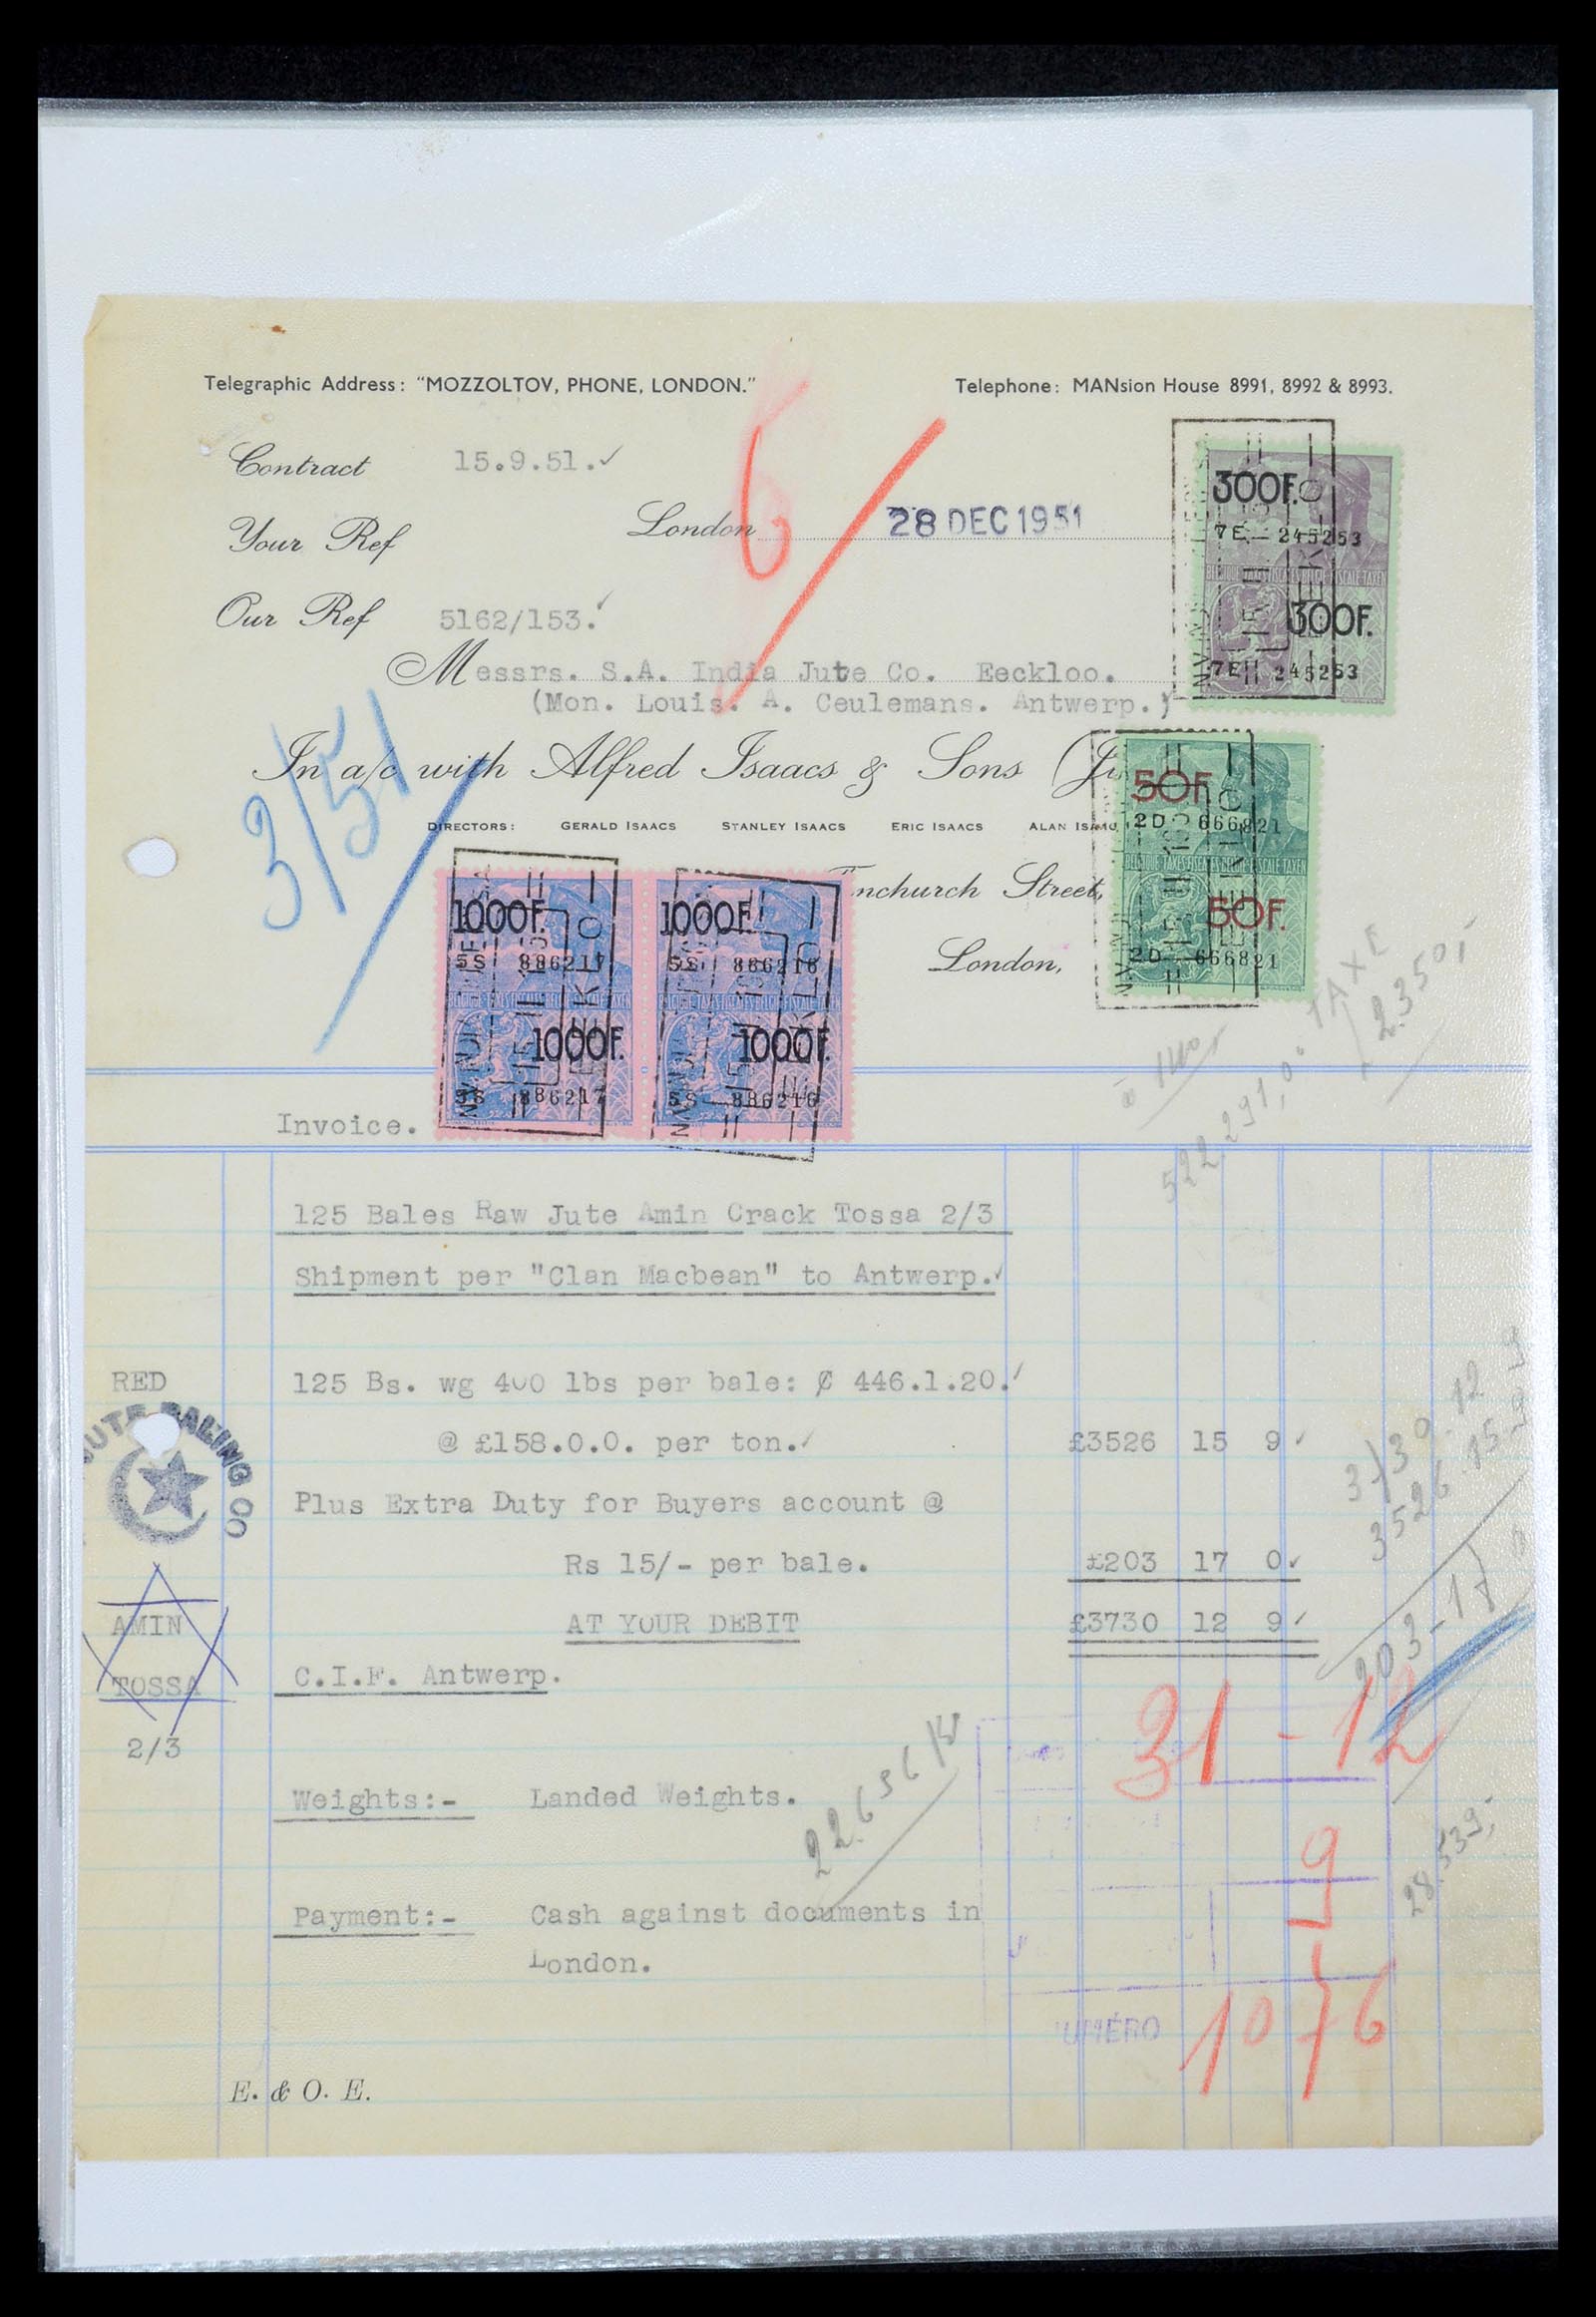 Telegraphic Address: "MOZZOLTOV, PHONE, LONDON."
Telephone: MANsion House 8991, 8992 & 8993.
Contract 15.9.51.✓
Your Ref
London 28 DEC 1951
6
Our Ref 5162/153.
Messrs. S.A. India Jute Co. Eeckloo.
(Mon. Louis. A. Ceulemans. Antwerp.)
300F.
7E 245253
BELGIQUE-TAXES FISCALES BELGIE-FISCALE TAXEN
300F.
7E 245253
3/51
In a/c with Alfred Isaacs & Sons
DIRECTORS: GERALD ISAACS STANLEY ISAACS ERIC ISAACS ALAN
50F.
2D 666821
BELGIQUE-TAXES FISCALES BELGIE-FISCALE TAXEN
50F.
2D 666821
nchurch Street,
London,
1000F. 1000F.
5S 886217 5S 886216
1000F. 1000F.
5S 886217 5S 886216
TAXE
23501
522,291,0
Invoice.
125 Bales Raw Jute Amin Crack Tossa 2/3
Shipment per "Clan Macbean" to Antwerp.✓
RED
125 Bs. wg 400 lbs per bale: ₡ 446.1.20.✓
JUTE BALING CO
@ £158.0.0. per ton.✓ £3526 15 9✓
Plus Extra Duty for Buyers account @
Rs 15/- per bale. £203 17 0✓
AMIN
AT YOUR DEBIT £3730 12 9✓
TOSSA
C.I.F. Antwerp.
2/3
3526 15
203-17
31-12
Weights:- Landed Weights.
9
28.539,-
Payment:- Cash against documents in
London.
NUMÉRO 1076
E. & O. E.